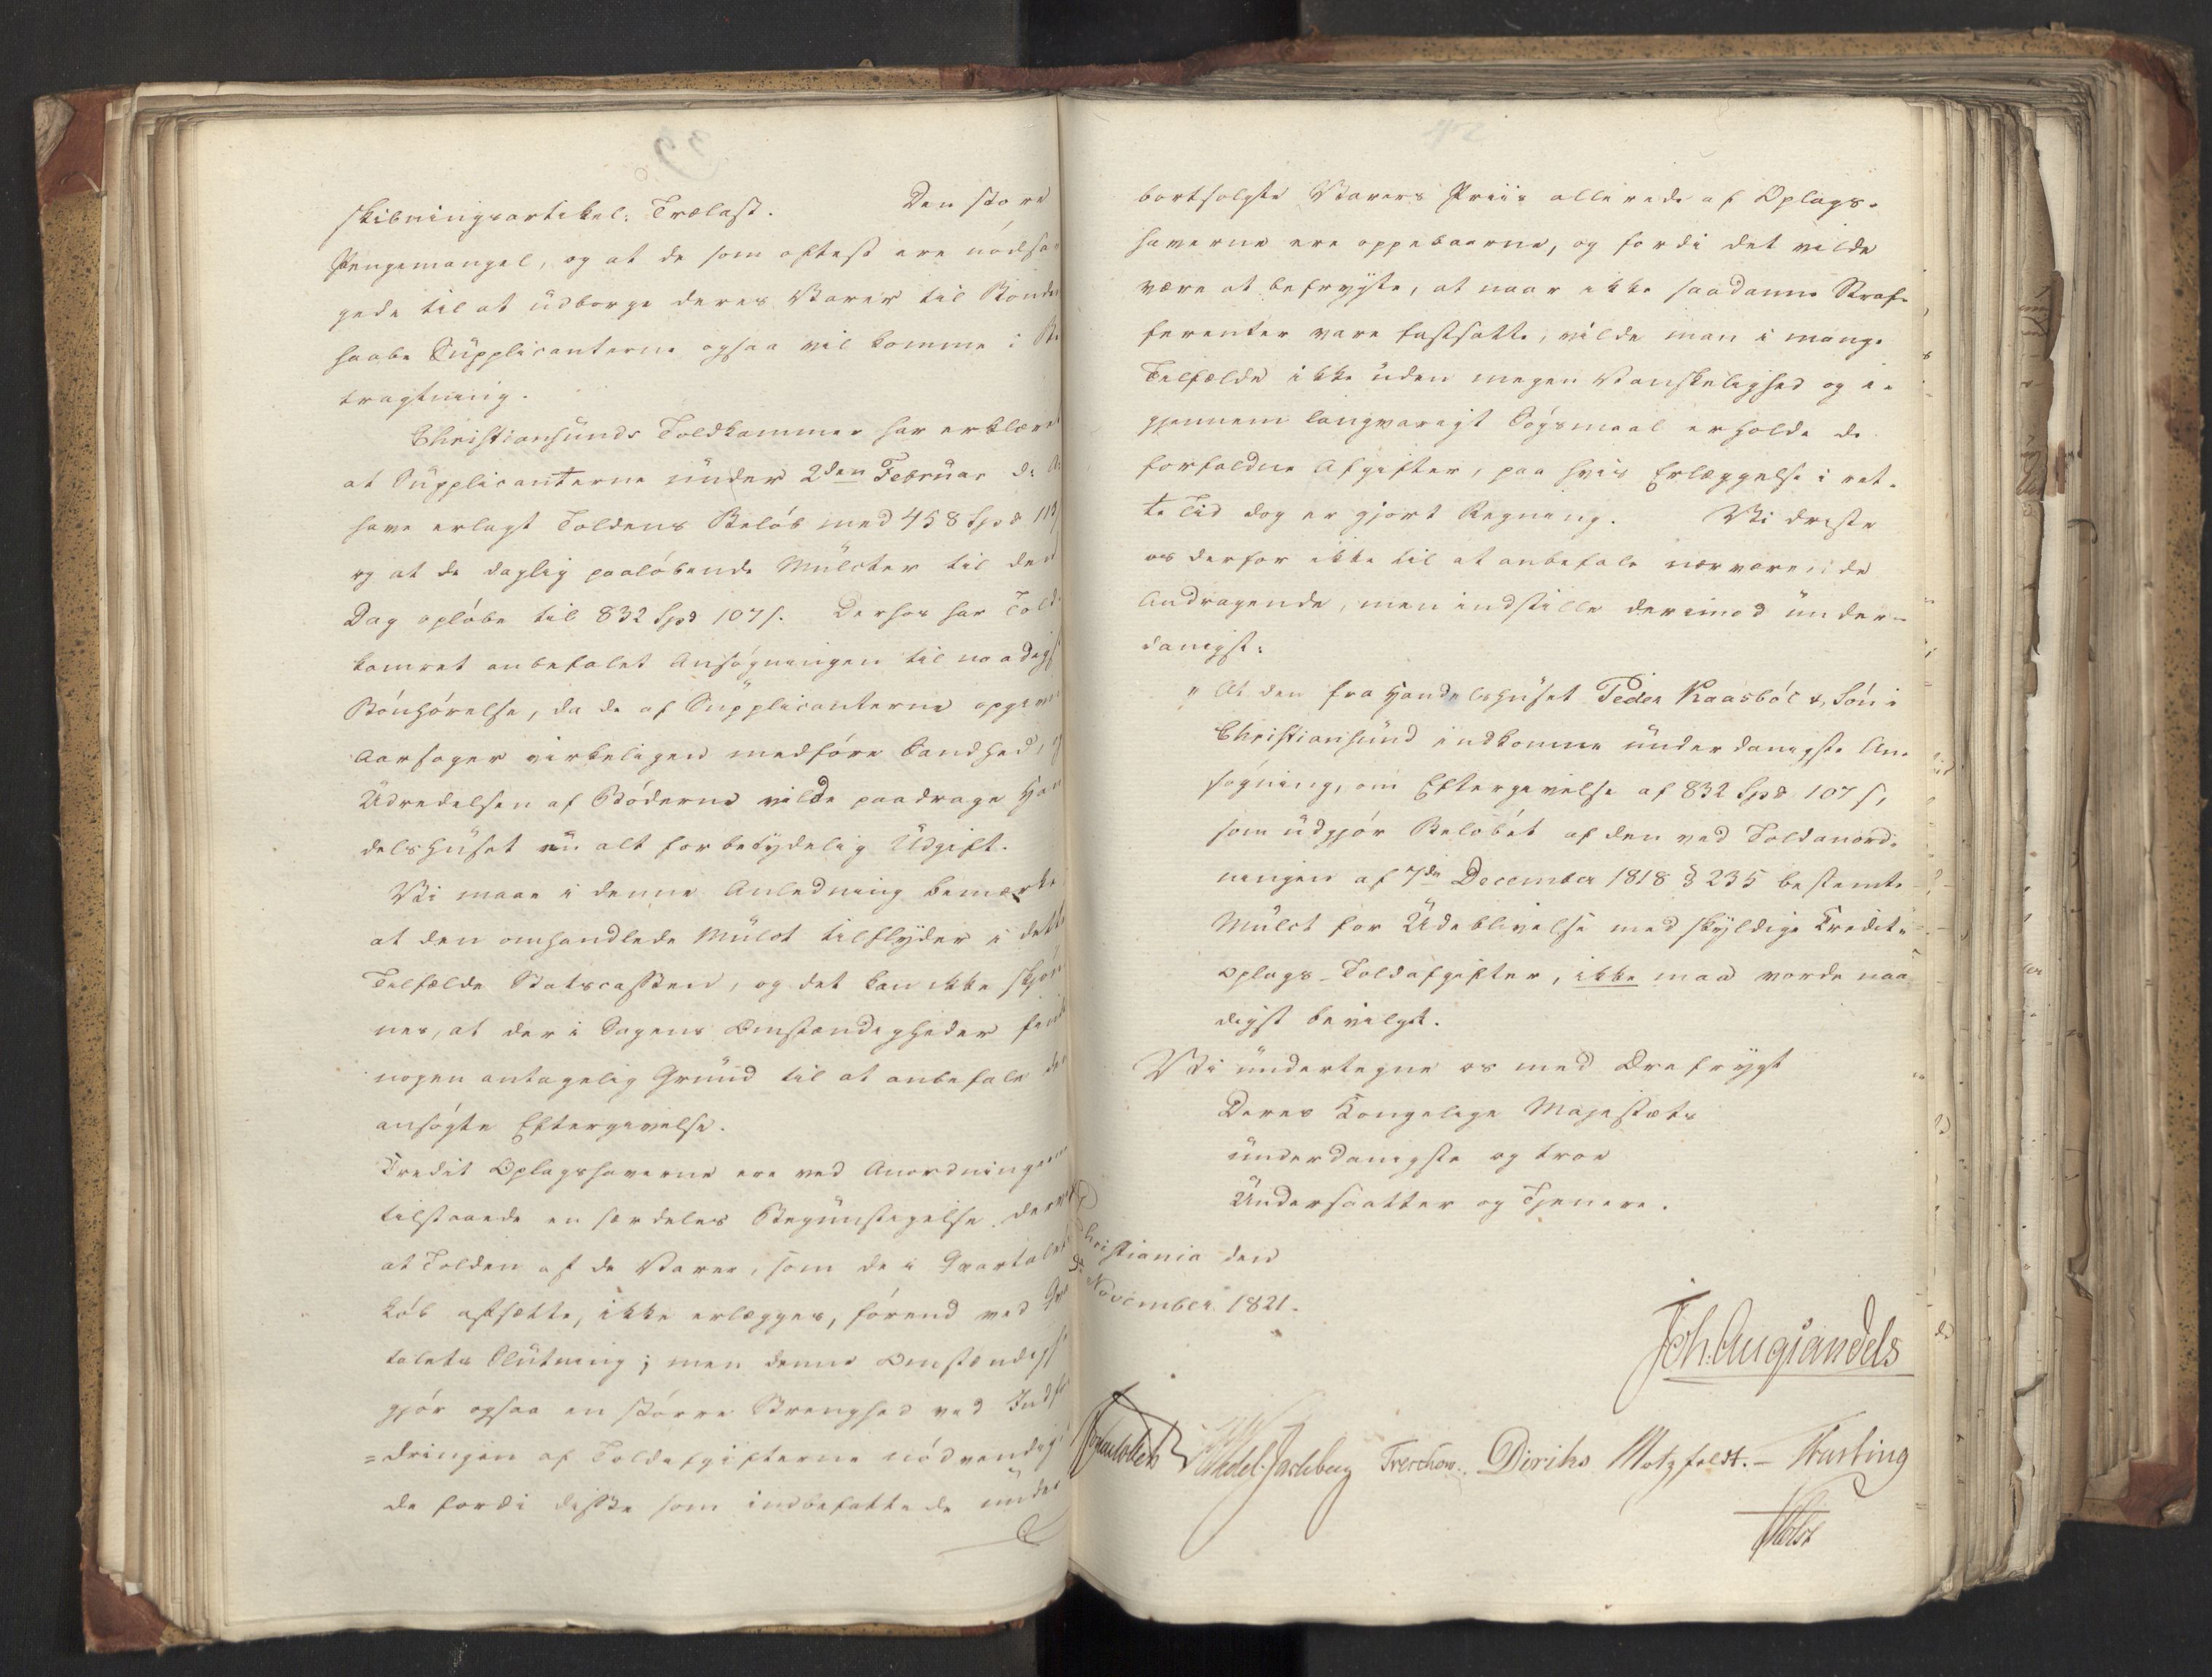 skibningsartikel: Trælast. Den store
Pengemangel, og at de som oftest ere nödsa
gede til at udborge deres Varer til Bönder
haabe Supplicanterne ogsaa vil komme i Be
tragtning.
Christiansunds Toldkammer har erklæret
at Supplicanterne under 2den Februar d: A:
have erlagt Toldens Belöb med 458 Spd 113
og at de daglig paalöbende Mulcter til den
Dag oplöbe til 832 Spd 107 s. Derhos har Told-
kamret anbefalet Ansögningen til naadigst
Bönhörelse, da de af Supplicanterne opgivne
Aarsager virkeligen medföre Sandhed, og
Udredelsen af Böderne vilde paadrage Han
delshuset en alt for betydelig Udgift.
Vi maae i denne Anledning bemærke
at den omhandlede Mulct tilflyder i dette
Tilfælde Statscassen, og det kan ikke skjön
nes, at der i Sagens Omstændigheder findes
nogen antagelig Grund til at anbefale den
ansögte Eftergivelse.
Credit Oplagshaverne ere ved Anordningen
tilstaaede en særdeles Begunstigelse derved
at Tolden af de Varer, som de i Qvartalets
Löb afsætte, ikke erlægges, förend ved Qvar
talets Slutning; men denne Omstændigh
gjör ogsaa en större Strenghed ved Indfor
=dringen af Toldafgifterne nödvendig
da fordi disse som indbefattede under
39
bortsolgte Varers Priis allerede af Oplags-
haverne ere oppebaarne, og fordi det vilde
være at befrygte, at naar ikke saadanne Straf-
ferenter vare fastsatte, vilde man i mange
Tilfælde ikke uden megen Vanskelighed og i-
gjennem langvarigt Sögsmaal erholde de
forfaldne Afgifter, paa hvis Erlæggelse i ret-
te Tid dog er gjort Regning. Vi driste
os derfor ikke til at anbefale nærværende
Andragende, men indstille derimod under-
danigst:
"At den fra Handelshuset Peder Kaasböl & Sön i
Christiansund indkomne underdanigste An-
sögning, om Eftergivelse af 832 Spd 107 s,
som udgjör Belöbet af den ved Toldanord-
ningen af 7de December 1818 § 235 bestemte
Mulct for Udeblivelse med skyldige Credit-
oplags-Toldafgifter, ikke maa vorde naa-
digst bevilget.
Vi undertegne os med Ærefrygt
Deres Kongelige Majestæts
underdanigste og troe
Undersaatter og Tjenere.
Christiania den
November 1821.
Joh. Aug. Sandels
Wedel-Jarlsberg Treschow. Diriks Motzfeldt. - Fasting
Holst